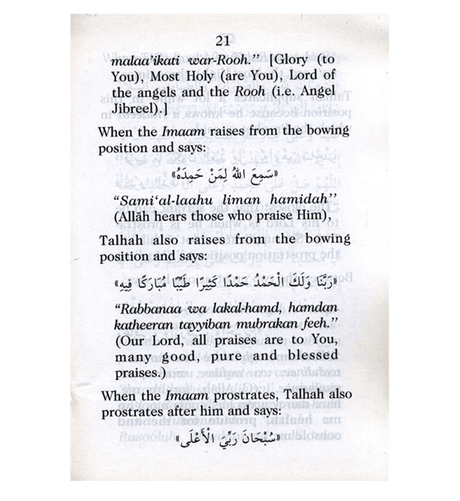 21
malaa'ikati war-Rooh." [Glory (to
You), Most Holy (are You), Lord of
the angels and the Rooh (i.e. Angel
Jibreel).]
When the Imaam raises from the bowing
position and says:
«سَمِعَ اللهُ لِمَنْ حَمِدَهُ»
"Sami‘al-laahu liman hamidah"
(Allāh hears those who praise Him),
Talhah also raises from the bowing
position and says:
«رَبَّنَا وَلَكَ الْحَمْدُ حَمْدًا كَثِيرًا طَيِّبًا مُبَارَكًا فِيهِ»
"Rabbanaa wa lakal-hamd, hamdan
katheeran tayyiban mubrakan feeh."
(Our Lord, all praises are to You,
many good, pure and blessed
praises.)
When the Imaam prostrates, Talhah also
prostrates after him and says:
«سُبْحَانَ رَبِّيَ الْأَعْلَى»